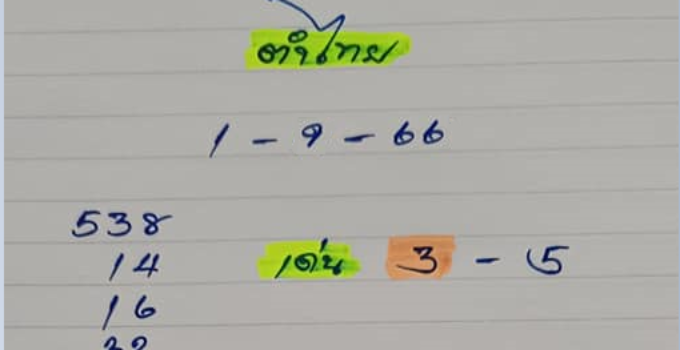 ตำไทย
1 - 9 - 66
538
14
เด่น 3 - 5
16